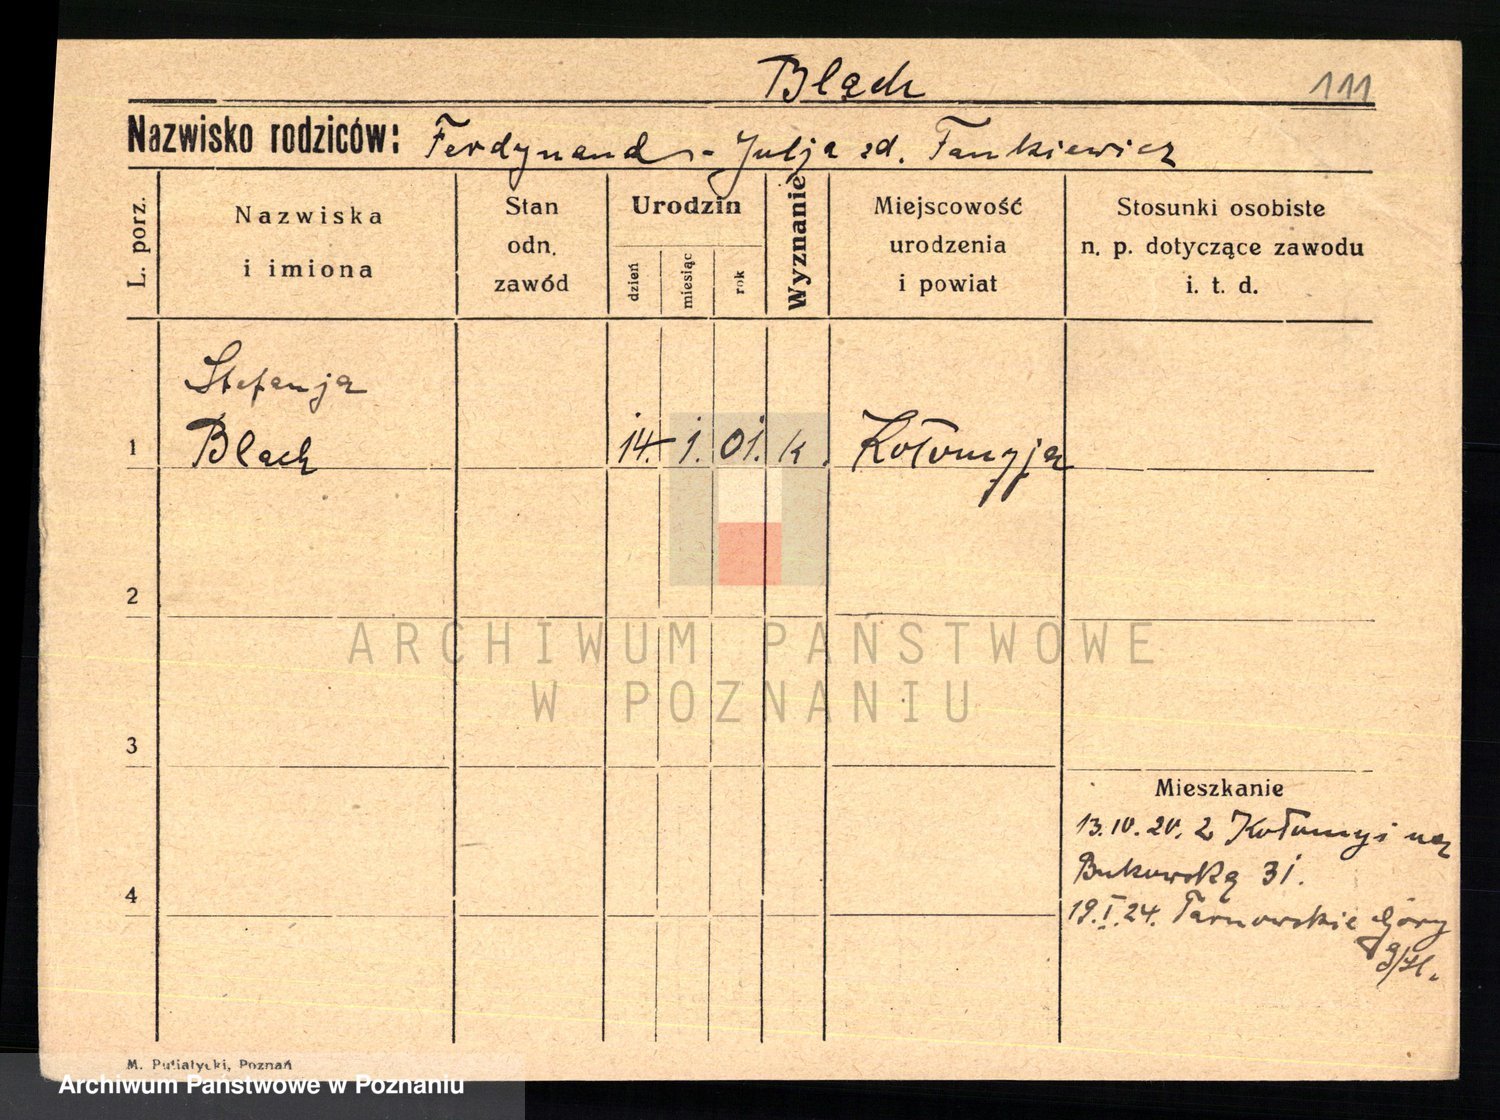 Bląch
111
Nazwisko rodziców: Ferdynand - Julja zd. Fankiewicz
L. porz.
Nazwiska
i imiona
Stan
odn.
zawód
Urodzin
dzień
miesiąc
rok
Wyznanie
Miejscowość
urodzenia
i powiat
Stosunki osobiste
n. p. dotyczące zawodu
i. t. d.
Stefanja
1 Blach 14. 1. 01. k. Kołomyja
2
ARCHIWUM PAŃSTWOWE
W POZNANIU
3
Mieszkanie
13.IV.20. z Kołomyi na
Bukowską 31.
4
19.I.24. Tarnowskie Góry
M. Putiatycki, Poznań
Archiwum Państwowe w Poznaniu